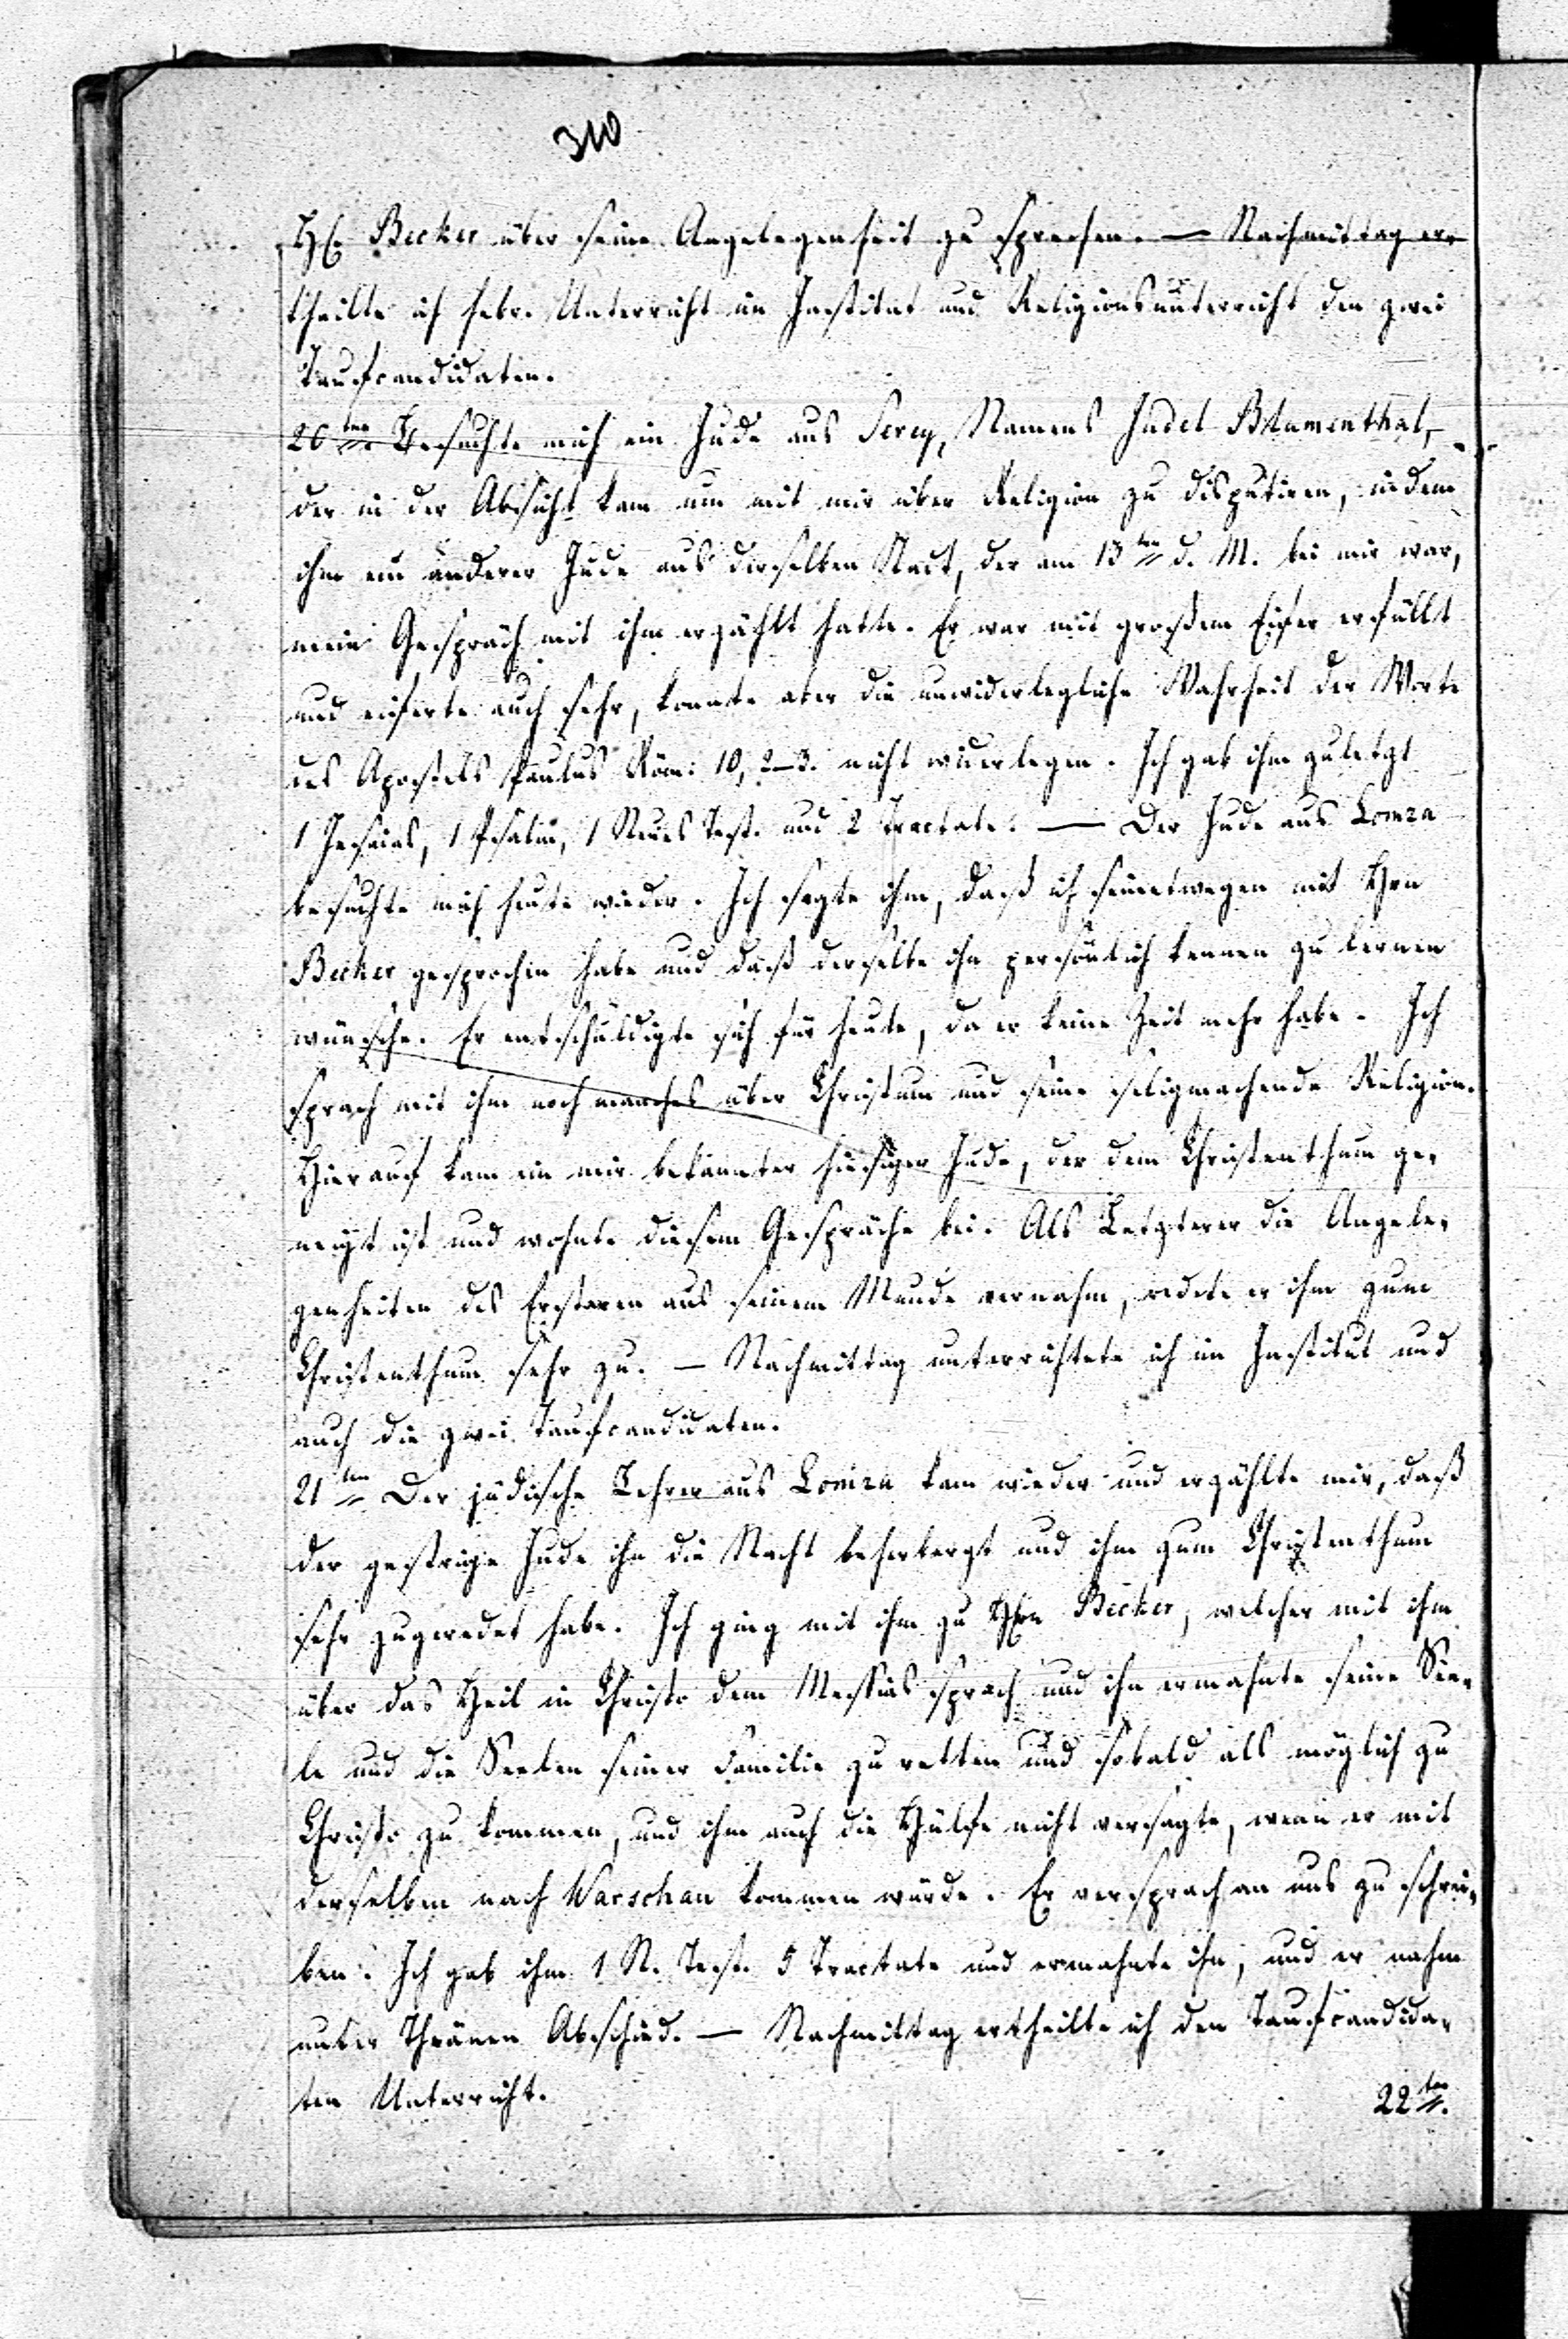 310
H[errn] Becker über seine Angelegenheit zu sprechen. — Nachmittag er-
theilte ich hebr. Unterricht im Institut und Religionsunterricht den zwei
Taufcandidaten.
20ten Besuchte mich ein Jude aus Serey, Namens Judel Blumenthal,
der in der Absicht kam um mit mir über Religion zu disputiren, indem
ihm ein anderer Jude aus derselben Stadt, der am 13ten d. M. bei mir war,
mein Gespräch mit ihm erzählt hatte. Er war mit großem Eifer erfüllt
und eiferte auch sehr, konnte aber die unwiderlegliche Wahrheit der Worte
des Apostels Paulus Röm: 10, 2-3. nicht widerlegen. Ich gab ihm zuletzt
1 Jesaias, 1 Psalm, 1 Neues Test. und 2 Tractate. — Der Jude aus Lomza
besuchte mich heute wieder. Ich sagte ihm, daß ich seinetwegen mit Hrn
Becker gesprochen habe und daß derselbe ihn persönlich kennen zu lernen
wünsche. Er entschuldigte sich für heute, da er keine Zeit mehr habe. Ich
sprach mit ihm noch manches über Christum und seine seligmachende Religion.
Hierauf kam ein mir bekannter hiesiger Jude, der dem Christenthum ge-
neigt ist und wohnte diesem Gespräche bei. Als Letzterer die Angele-
genheiten des Ersteren aus seinem Munde vernahm, redete er ihm zum
Christenthum sehr zu. — Nachmittag unterrichtete ich im Institut und
auch die zwei Taufcandidaten.
21ten Der jüdische Lehrer aus Lomza kam wieder und erzählte mir, daß
der gestrige Jude ihn die Nacht beherbergt und ihm zum Christenthum
sehr zugeredet habe. Ich ging mit ihm zu Hrn Becker, welcher mit ihm
über das Heil in Christo dem Messias sprach und ihn ermahnte seine See-
le und die Seelen seiner Familie zu retten und sobald als möglich zu
Christo zu kommen, und ihm auch die Hülfe nicht versagte, wenn er mit
derselben nach Warschau kommen würde. Er versprach an uns zu schrei-
ben. Ich gab ihm 1 N. Test. 5 Tractate und ermahnte ihn, und er nahm
unter Thränen Abschied. — Nachmittag ertheilte ich den Taufcandida-
ten Unterricht.
22ten.